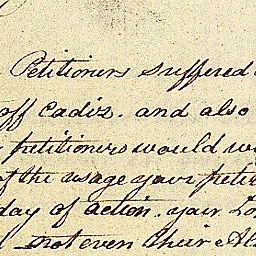 Petitioners suffered
off Cadiz. and also
petitioners would
of the usage your
day of action. your
not even their